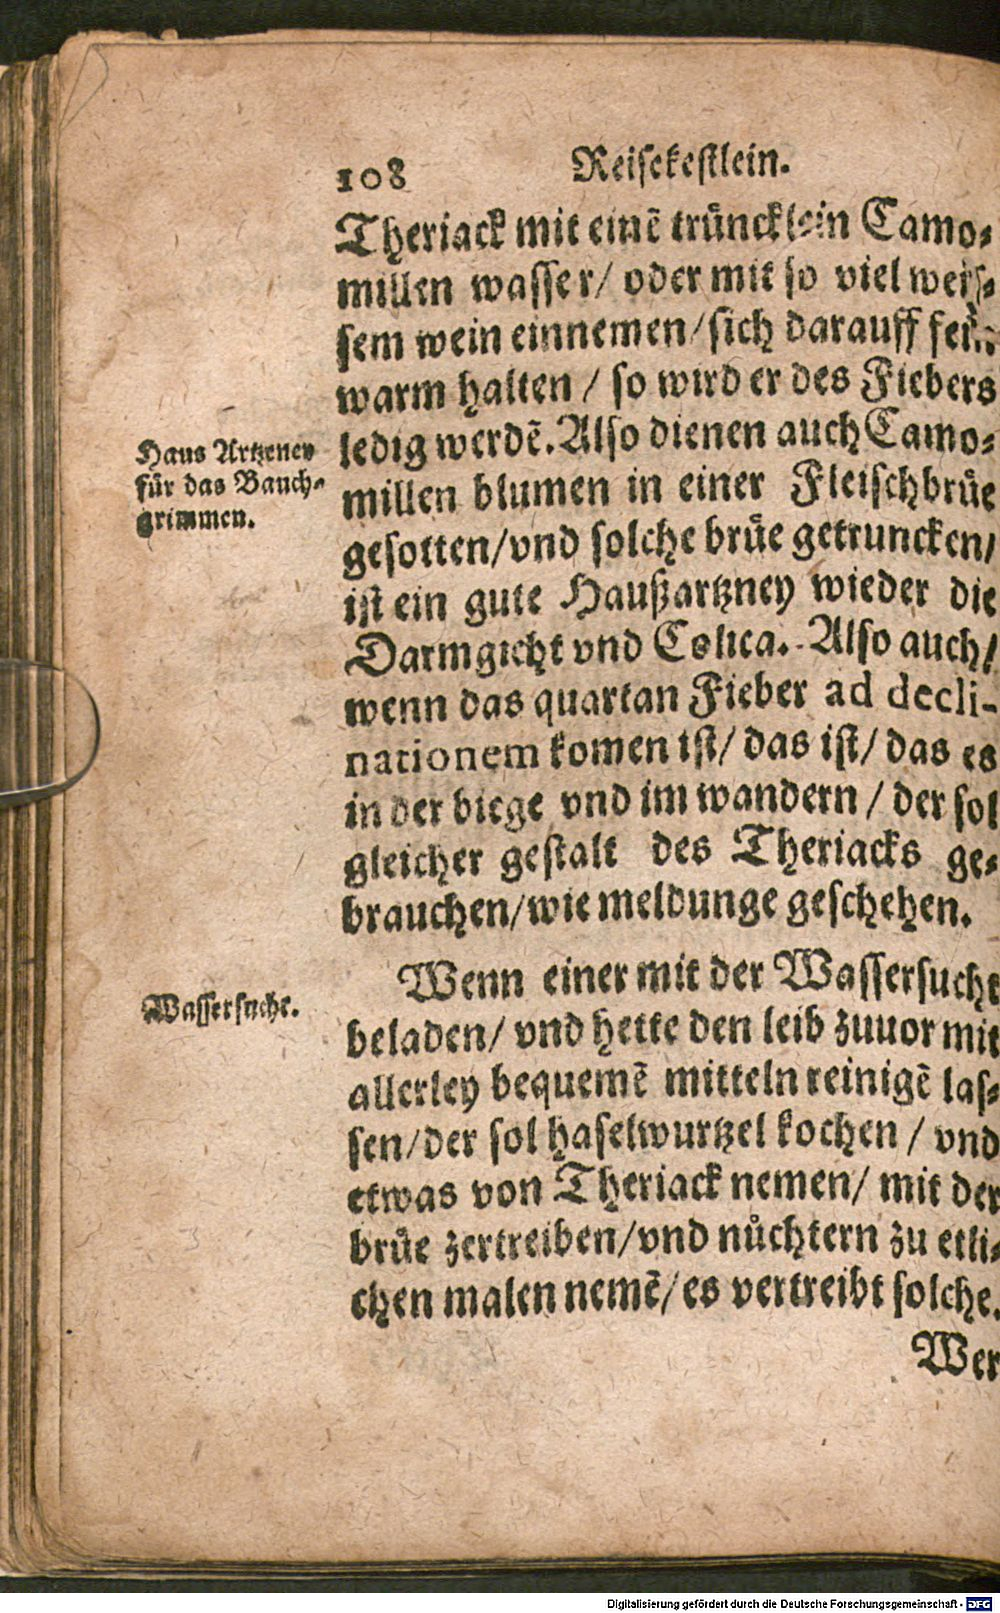 108 Reisekestlein.
Theriack mit einẽ trüncklein Camo-
millen wasser/ oder mit so viel weis-
sem wein einnemen/sich darauff fein
warm halten / so wird er des Fiebers
ledig werdẽ. Also dienen auch Camo-
millen blumen in einer Fleischbrüe
gesotten/vnd solche brüe getruncken/
ist ein gute Haußartzney wieder die
Darmgicht vnd Colica. Also auch/
wenn das quartan Fieber ad decli-
nationem komen ist/ das ist/ das es
in der biege vnd im wandern / der sol
gleicher gestalt des Theriacks ge-
brauchen/wie meldunge geschehen.
Haus Artzeney
für das Bauch-
grimmen.
Wenn einer mit der Wassersucht
beladen/ vnd hette den leib zuuor mit
allerley bequemẽ mitteln reinigẽ las-
sen/der sol haselwurtzel kochen / vnd
etwas von Theriack nemen/ mit der
brüe zertreiben/vnd nüchtern zu etli-
chen malen nemẽ/es vertreibt solche.
Wassersucht.
Wer
Digitalisierung gefördert durch die Deutsche Forschungsgemeinschaft - DFG